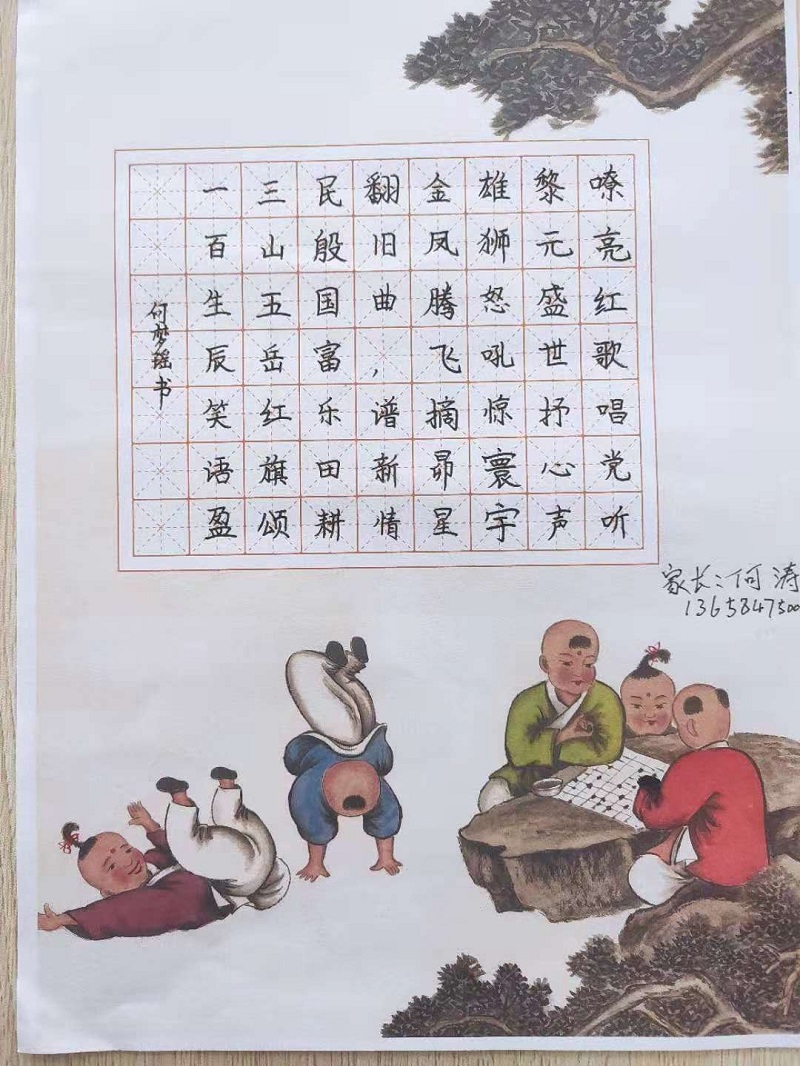 嘹亮红歌唱党听
黎元盛世抒心声
雄狮怒吼惊寰宇
金凤腾飞摘昴星
翻旧曲，谱新情
民殷国富乐田耕
三山五岳红旗颂
一百生辰笑语盈
何梦瑶书
家长：何涛
1365847500